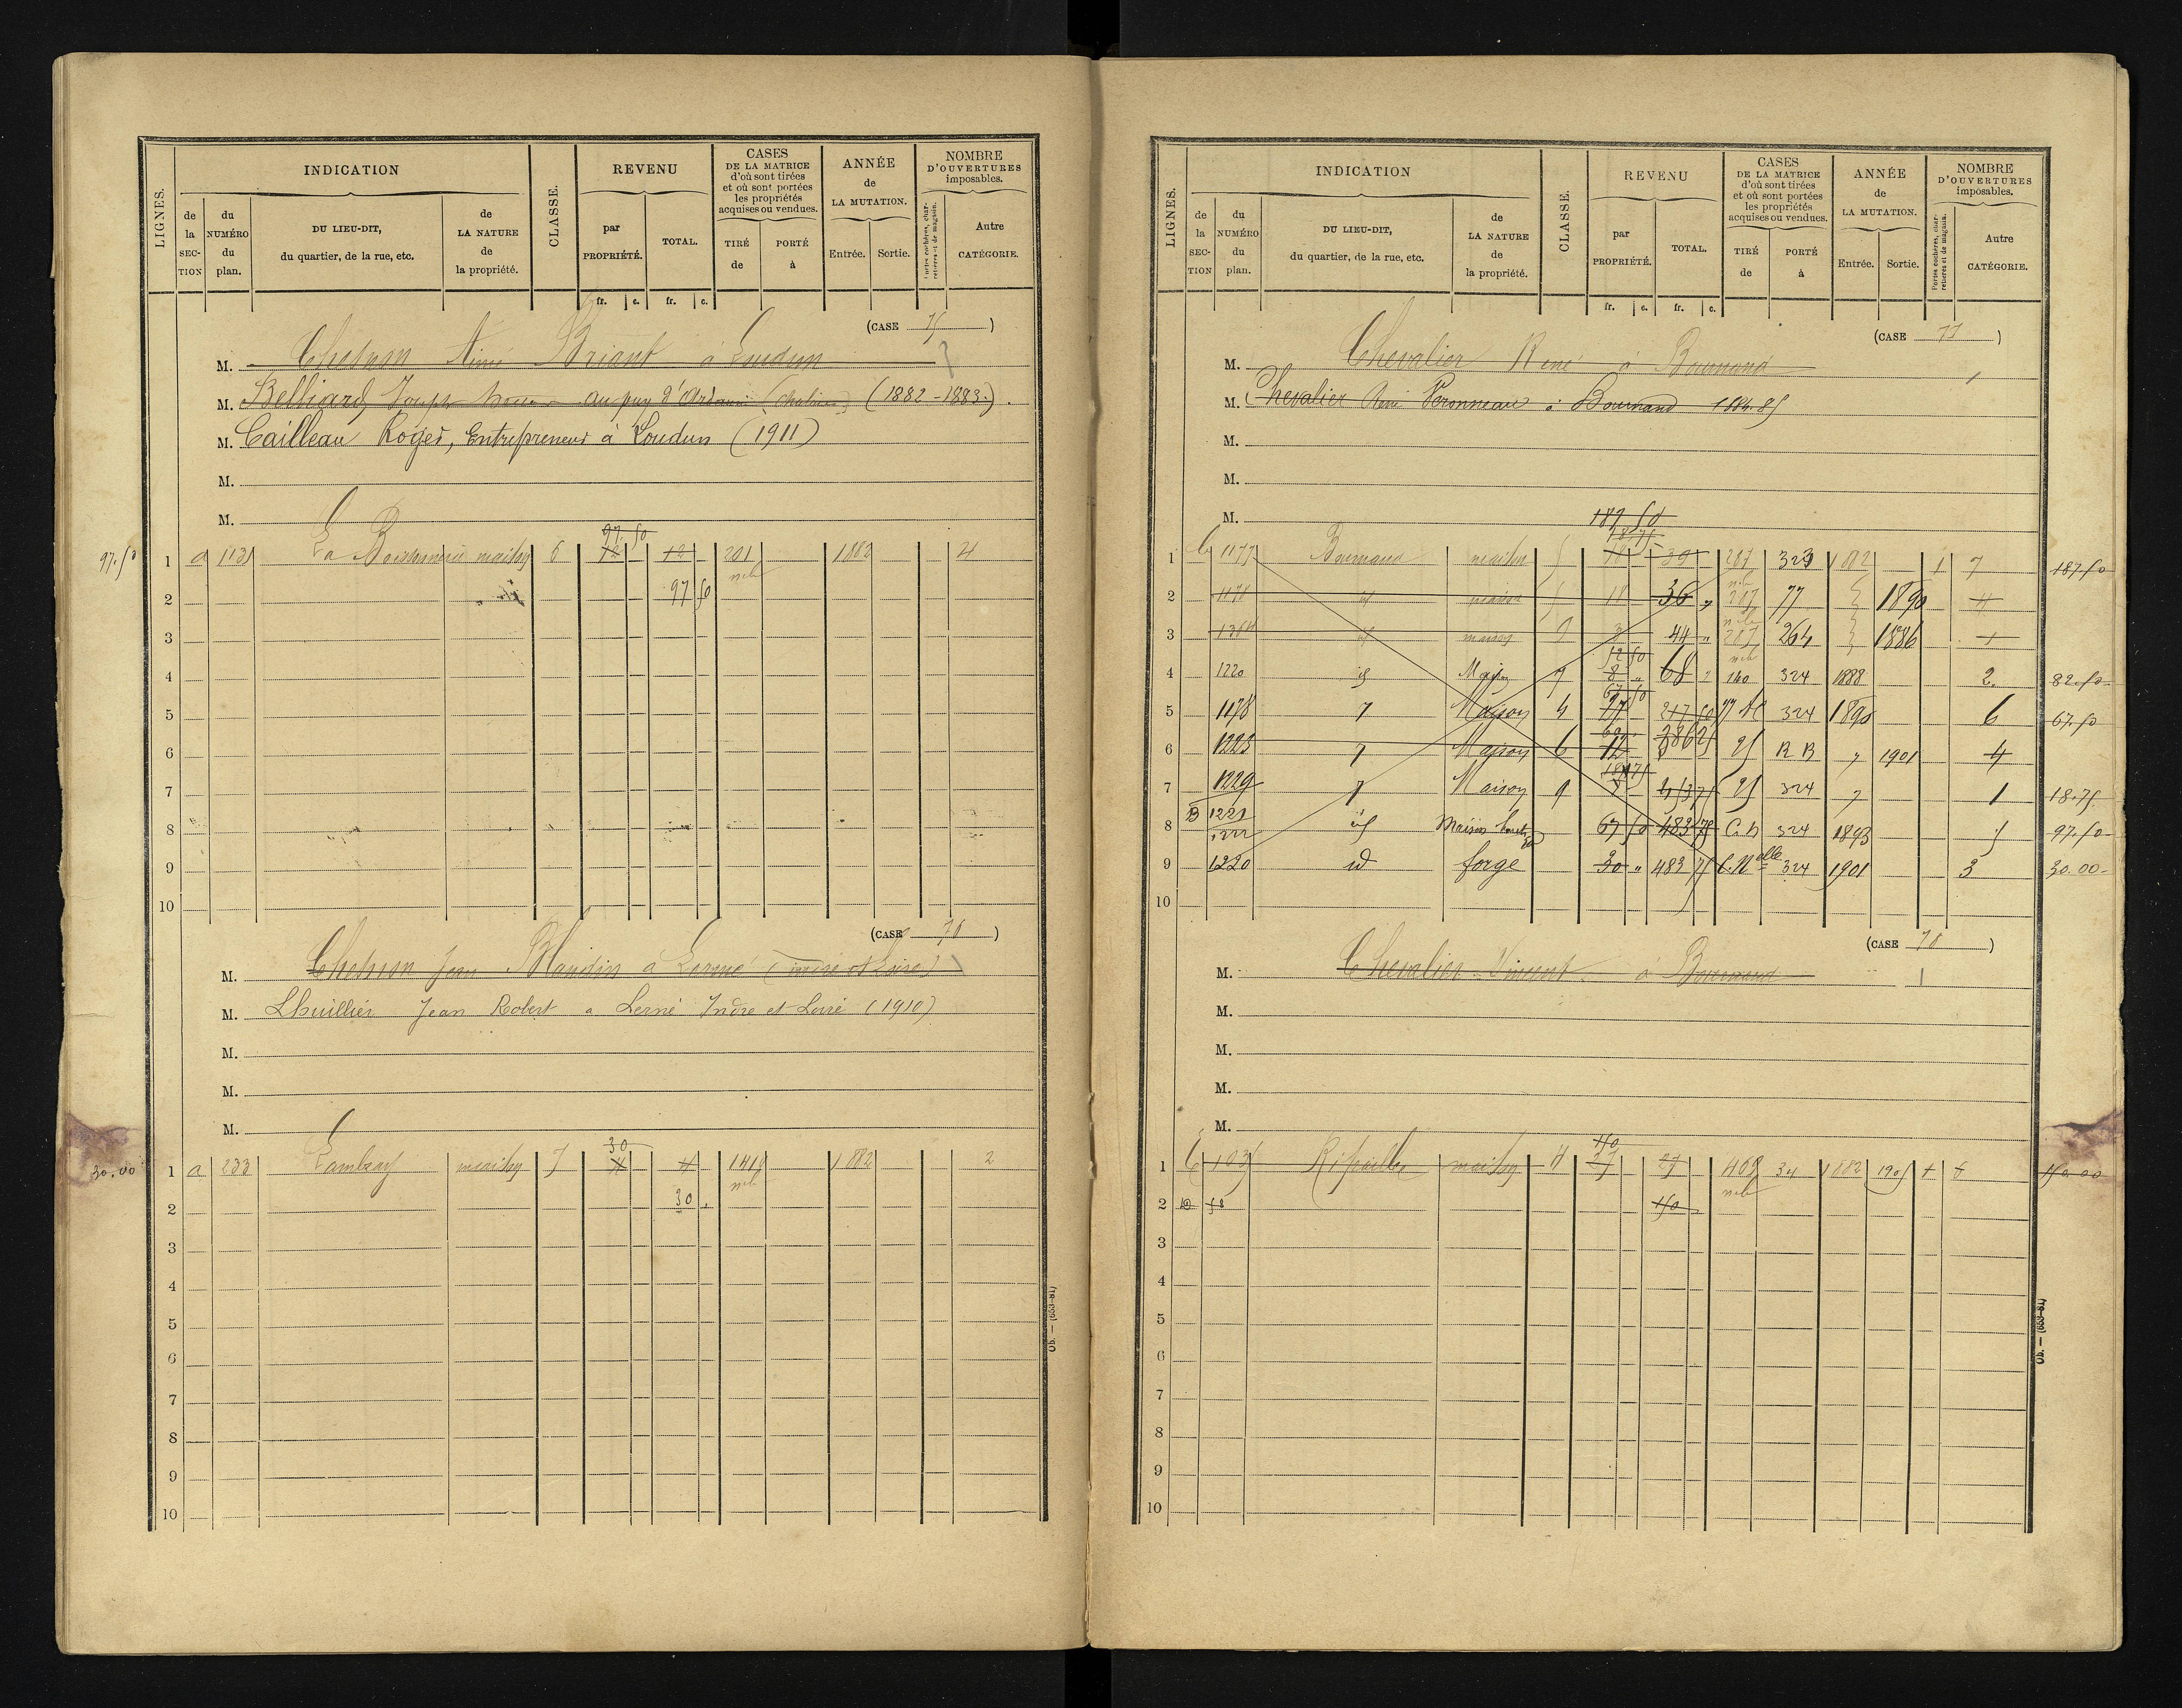 LIGNES.
INDICATION
de la SECTION
du NUMÉRO du plan.
DU LIEU-DIT, du quartier, de la rue, etc.
de LA NATURE de la propriété.
CLASSE.
REVENU
par PROPRIÉTÉ.
TOTAL.
fr. c. fr. c.
CASES DE LA MATRICE d'où sont tirées et où sont portées les propriétés acquises ou vendues.
TIRÉ de
PORTÉ à
ANNÉE de LA MUTATION.
Entrée. Sortie.
NOMBRE D'OUVERTURES imposables.
Portes cochères, charretières et de magasin.
Autre CATÉGORIE.
(CASE 75)
M. Chesnon Aimé Briant à Loudun
M. Belliard Joseph au puy d'Ardanne (Chalais) (1882-1883).
M. Cailleau Roger, Entrepreneur à Loudun (1911)
M.
M.
97.50
97.50 1 a 113 La maison 6 12 12 201 1882 4
2 97 50
3
4
5
6
7
8
9
10
(CASE 76)
M. Chesnon Jean Blandin à Lerné (indre et Loire)
M. Lhuillier Jean Robert a Lerné Indre et Loire (1910)
M.
M.
M.
30
30.00 1 a 233 Lambray maison 7 4 4 1882 2
2 30
3
4
5
6
7
8
9
10
Ob. — (653-81)
LIGNES.
INDICATION
de la SECTION
du NUMÉRO du plan.
DU LIEU-DIT, du quartier, de la rue, etc.
de LA NATURE de la propriété.
CLASSE.
REVENU
par PROPRIÉTÉ.
TOTAL.
fr. c. fr. c.
CASES DE LA MATRICE d'où sont tirées et où sont portées les propriétés acquises ou vendues.
TIRÉ de
PORTÉ à
ANNÉE de LA MUTATION.
Entrée. Sortie.
NOMBRE D'OUVERTURES imposables.
Portes cochères, charretières et de magasin.
Autre CATÉGORIE.
(CASE 77)
M. Chevalier René à Bournand
M. Chevalier René Véronneau à Bournand 1884.85
M.
M.
M.
187 50
1 b 1177 Bournand maison 5 18 39 287 323 1882 1 7 187.50
2 1178 id maison 5 18 36 287 77 1890 4
3 1304 id maison 8 3 44 287 264 1886 1
4 1220 id Maison 7 8 68 140 324 1888 2 82.50
67 50
5 1178 Maison 4 27 217 50 324 1890 6 67.50
6 1223 Maison 6 12 386 25 R B 1901 4
18 75
7 1229 Maison 9 324 1 18.75
8 B 1221 1222 id Maison 67 50 483 75 C.N 324 1893 5 97.50
9 1220 id forge 30 483 75 C.Nelle 324 1901 3 30.00
10
(CASE 78)
M. Chevalier Vincent à Bournand
M.
M.
M.
M.
150
1 103 Ripaille maison 4 27 27 469 34 1882 1905 1 150.00
2 D 58 150
3
4
5
6
7
8
9
10
Ob. — (653-81)